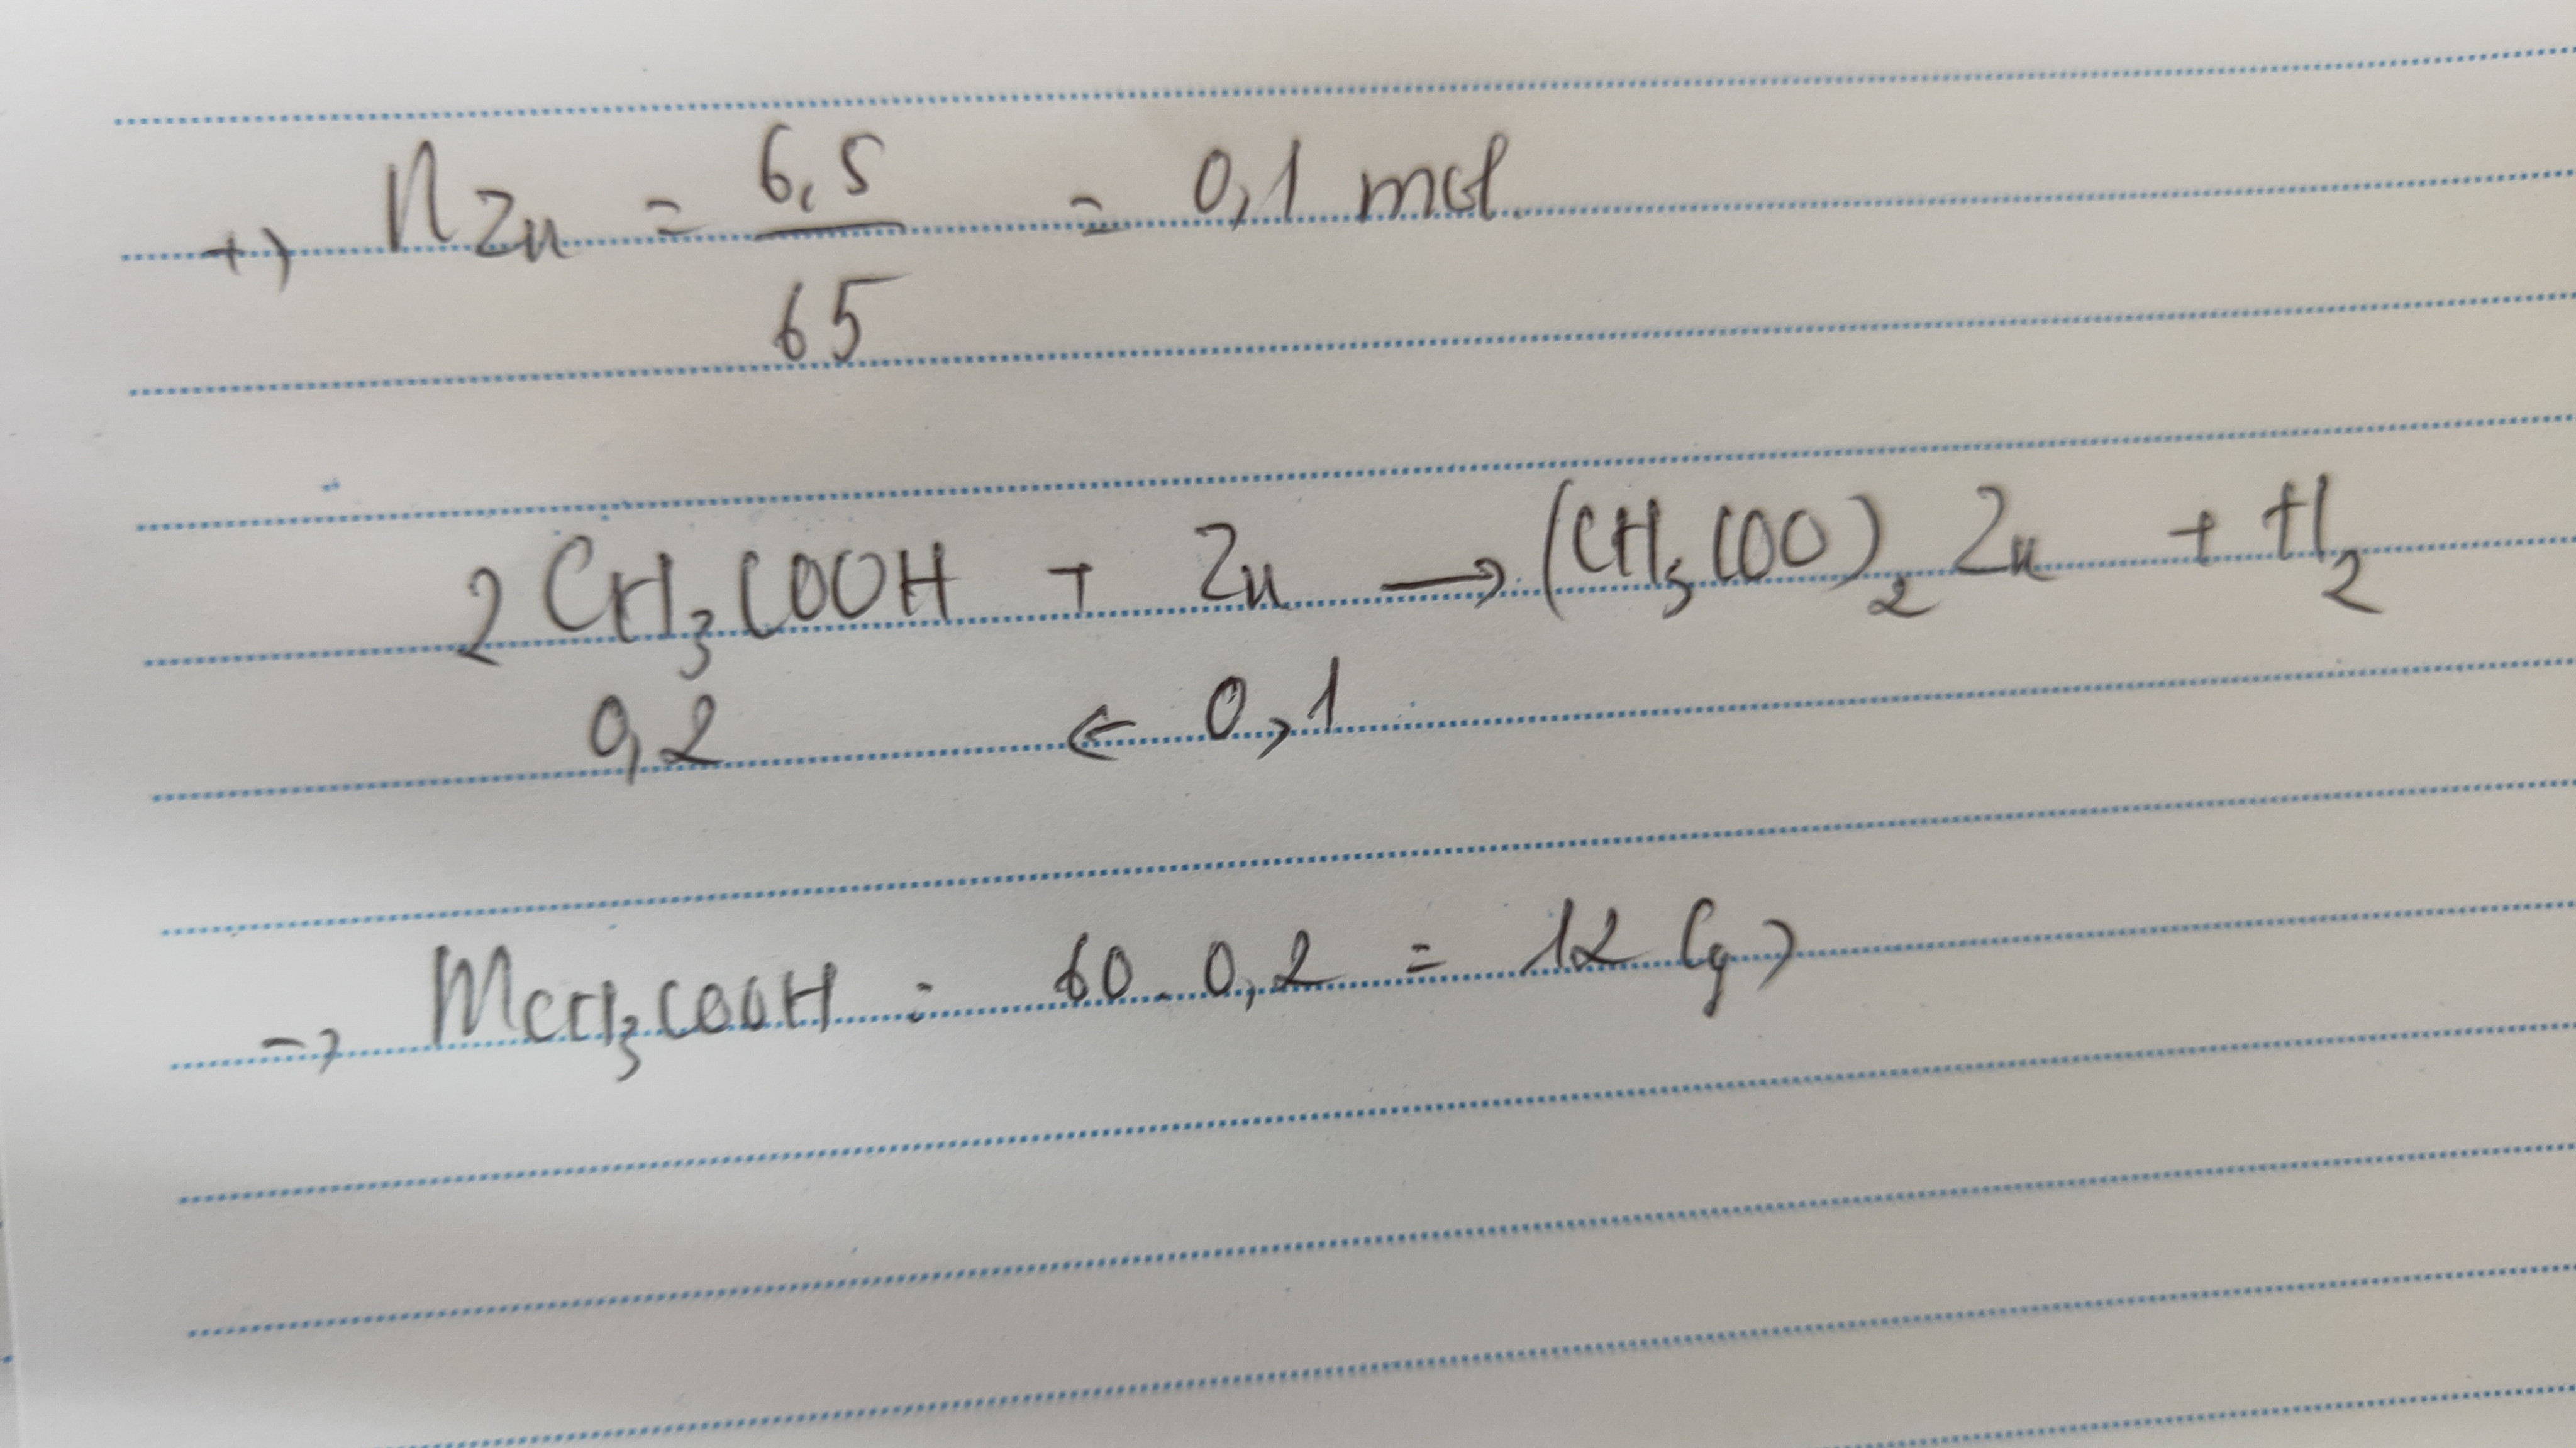 +) nZn = 6,5 / 65 = 0,1 mol.
2CH₃COOH + Zn → (CH₃COO)₂Zn + H₂
0,2 ← 0,1
→ mCH₃COOH = 60.0,2 = 12 (g)